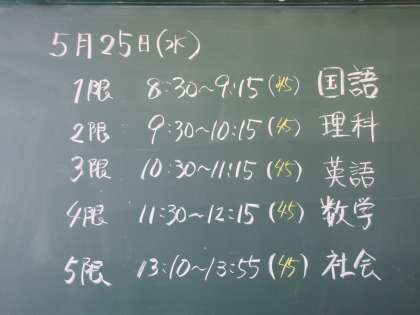 5月25日(水)
1限 8:30~9:15 (45) 国語
2限 9:30~10:15 (45) 理科
3限 10:30~11:15 (45) 英語
4限 11:30~12:15 (45) 数学
5限 13:10~13:55 (45) 社会